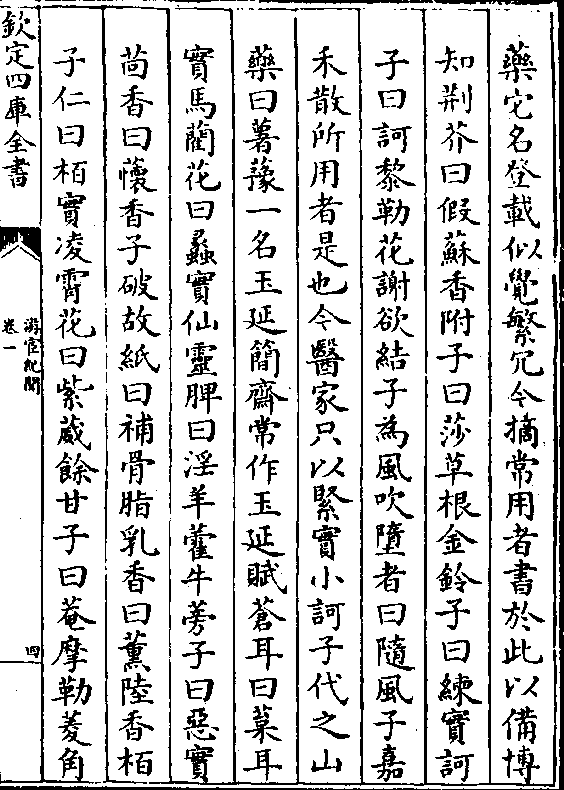 藥它名登載似覺繁冗今摘常用者書於此以備博
知荆芥曰假蘇香附子曰莎草根金鈴子曰練實訶
子曰訶黎勒花謝欲結子為風吹墮者曰隨風子嘉
禾散所用者是也今醫家只以緊實小訶子代之山
藥曰薯蕷一名玉延簡齋常作玉延賦蒼耳曰葈耳
實馬藺花曰蠡實仙靈脾曰淫羊藿牛蒡子曰惡實
茴香曰懷香子破故紙曰補骨脂乳香曰薰陸香栢
子仁曰栢實凌霄花曰紫葳餘甘子曰菴摩勒菱角
欽定四庫全書
游宦紀聞
卷一
四